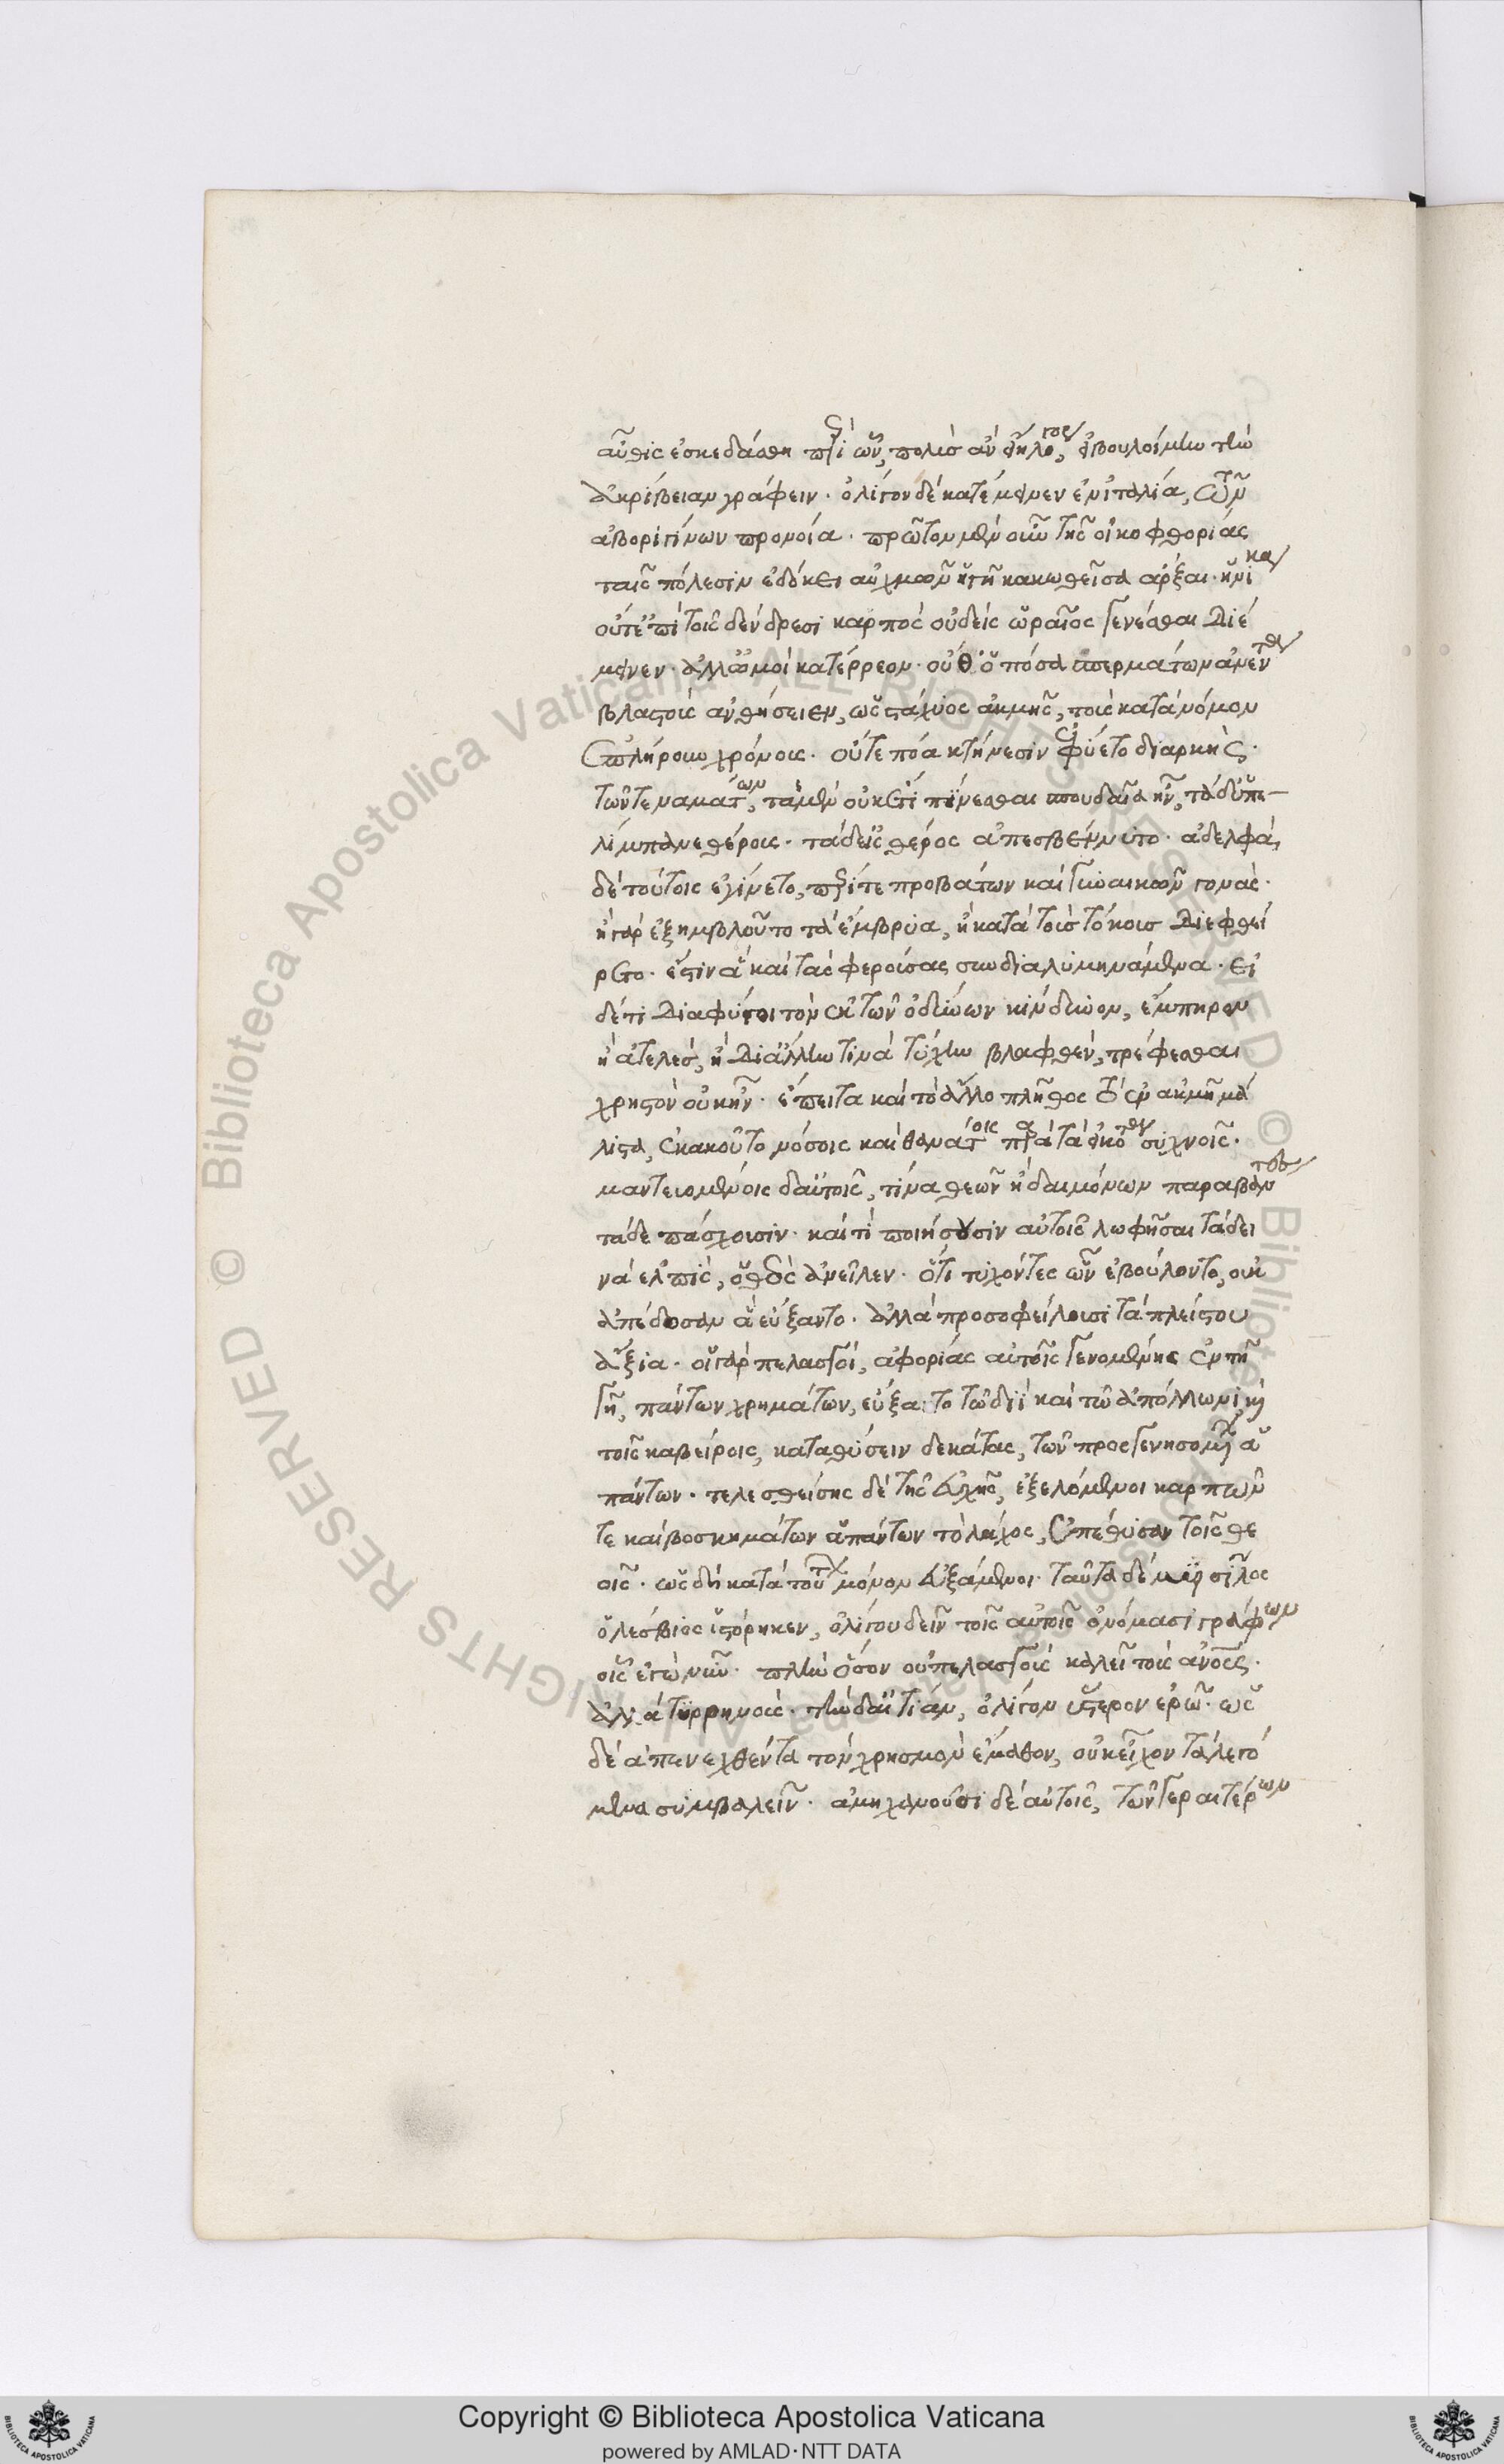 αὖθις ἐσκεδάσθη περὶ ὧν, πολὺς ἂν εἴη λόγος, εἰ βουλοίμην τὴν
ἀκρίβειαν γράφειν. ὀλίγον δὲ κατέμεινεν ἐν ἰταλία, τῶν
ἀβοριγίνων προνοία. πρῶτον μὲν οὖν τῆς οἰκοφθορίας
ταῖς πόλεσιν ἐδόκει αὐχμῶ ἡ γῆ κακωθεῖσα ἄρξαι. ἡνίκα
οὔτ' ἐπὶ τοῖς δένδρεσι καρπὸς οὐδεὶς ὡραῖος γενέσθαι διέ
μεινεν. ἀλλ' ὠμοὶ κατέρρεον. οὔθ' ὁπόσα σπερμάτων ἀνέντα
βλαστοὺς ἀνθήσειεν, ἕως στάχυος ἀκμῆς, τοὺς κατὰ νόμον
ἐξεπλήρου χρόνους. οὔτε πόα κτήνεσιν ἐφύετο διαρκής.
τῶν τε ναμάτων, τὰ μὲν οὐκέτι πίνεσθαι σπουδαῖα ἦν, τὰ δ' ὑπε
λίμπανε θέρους. τὰ δ' εἰς θέρος ἀπεσβέννυτο. ἀδελφὰ
δὲ τούτοις ἐγίνετο, περί τε προβάτων καὶ γυναικῶν γονάς.
ἢ γὰρ ἐξημβλοῦτο τὰ ἔμβρυα, ἢ κατὰ τοὺς τόκους διεφθεί
ρετο. ἔστιν ἃ καὶ τὰς φερούσας συνδιαλυμηνάμενα. εἰ
δέ τι διαφύγοι τὸν ἐκ τῶν ὀδίνων κίνδυνον, ἔμπηρον
ἢ ἀτελές, ἢ δι' ἄλλην τινὰ τύχην βλαφθέν, τρέφεσθαι
χρηστὸν οὐκ ἦν. ἔπειτα καὶ τὸ ἄλλο πλῆθος τὸ ἐν ἀκμῆ μά
λιστα, ἐκακοῦτο νόσοις καὶ θανάτοις παρὰ τὰ εἰκότα συχνοῖς.
μαντευομένοις δ' αὐτοῖς, τίνα θεῶν ἢ δαιμόνων παραβάντες
τάδε πάσχουσιν. καὶ τί ποιήσουσιν αὐτοῖς λωφῆσαι τὰ δει
νὰ ἐλπίς, ὁ θεὸς ἀνεῖλεν. ὅτι τυχόντες ὧν ἐβούλοντο, οὐκ
ἀπέδοσαν ἃ εὔξαντο. ἀλλὰ προσοφείλουσι τὰ πλείστου
ἄξια. οἱ γὰρ πελασγοί, ἀφορίας αὐτοῖς γενομένης ἐν τῆ
γῆ, πάντων χρημάτων, εὔξαντο τῶ διὶ καὶ τῶ ἀπόλλωνι καὶ
τοῖς καβείροις, καταθύσειν δεκάτας, τῶν προσγενησομένων ἁ
πάντων. τελεσθείσης δὲ τῆς εὐχῆς, ἐξελόμενοι καρπῶν
τε καὶ βοσκημάτων ἁπάντων τὸ λάχος, ἀπέθυσαν τοῖς θε
οῖς. ὡς δὴ κατὰ τούτων μόνον εὐξάμενοι. ταῦτα δὲ μυρσίλος
ὁ λέσβιος ἱστόρηκεν, ὀλίγου δεῖν τοῖς αὐτοῖς ὀνόμασι γράφων
οἷς ἐγὼ νῦν. πλὴν ὅσον οὐ πελασγοὺς καλεῖ τοὺς ἀνους.
ἀλλὰ τυρρηνούς. τὴν δ' αἰτίαν, ὀλίγον ὕστερον ἐρῶ. ὡς
δὲ ἀπενεχθέντα τὸν χρησμὸν ἔμαθον, οὐκ εἶχον τὰ λεγό
μενα συμβαλεῖν. ἀμηχανοῦσι δὲ αὐτοῖς, τῶν γεραιτέρων
© Biblioteca Apostolica Vaticana ALL RIGHTS RESERVED
Copyright © Biblioteca Apostolica Vaticana
powered by AMLAD·NTT DATA
BIBLIOTECA APOSTOLICA VATICANA
BIBLIOTECA APOSTOLICA VATICANA